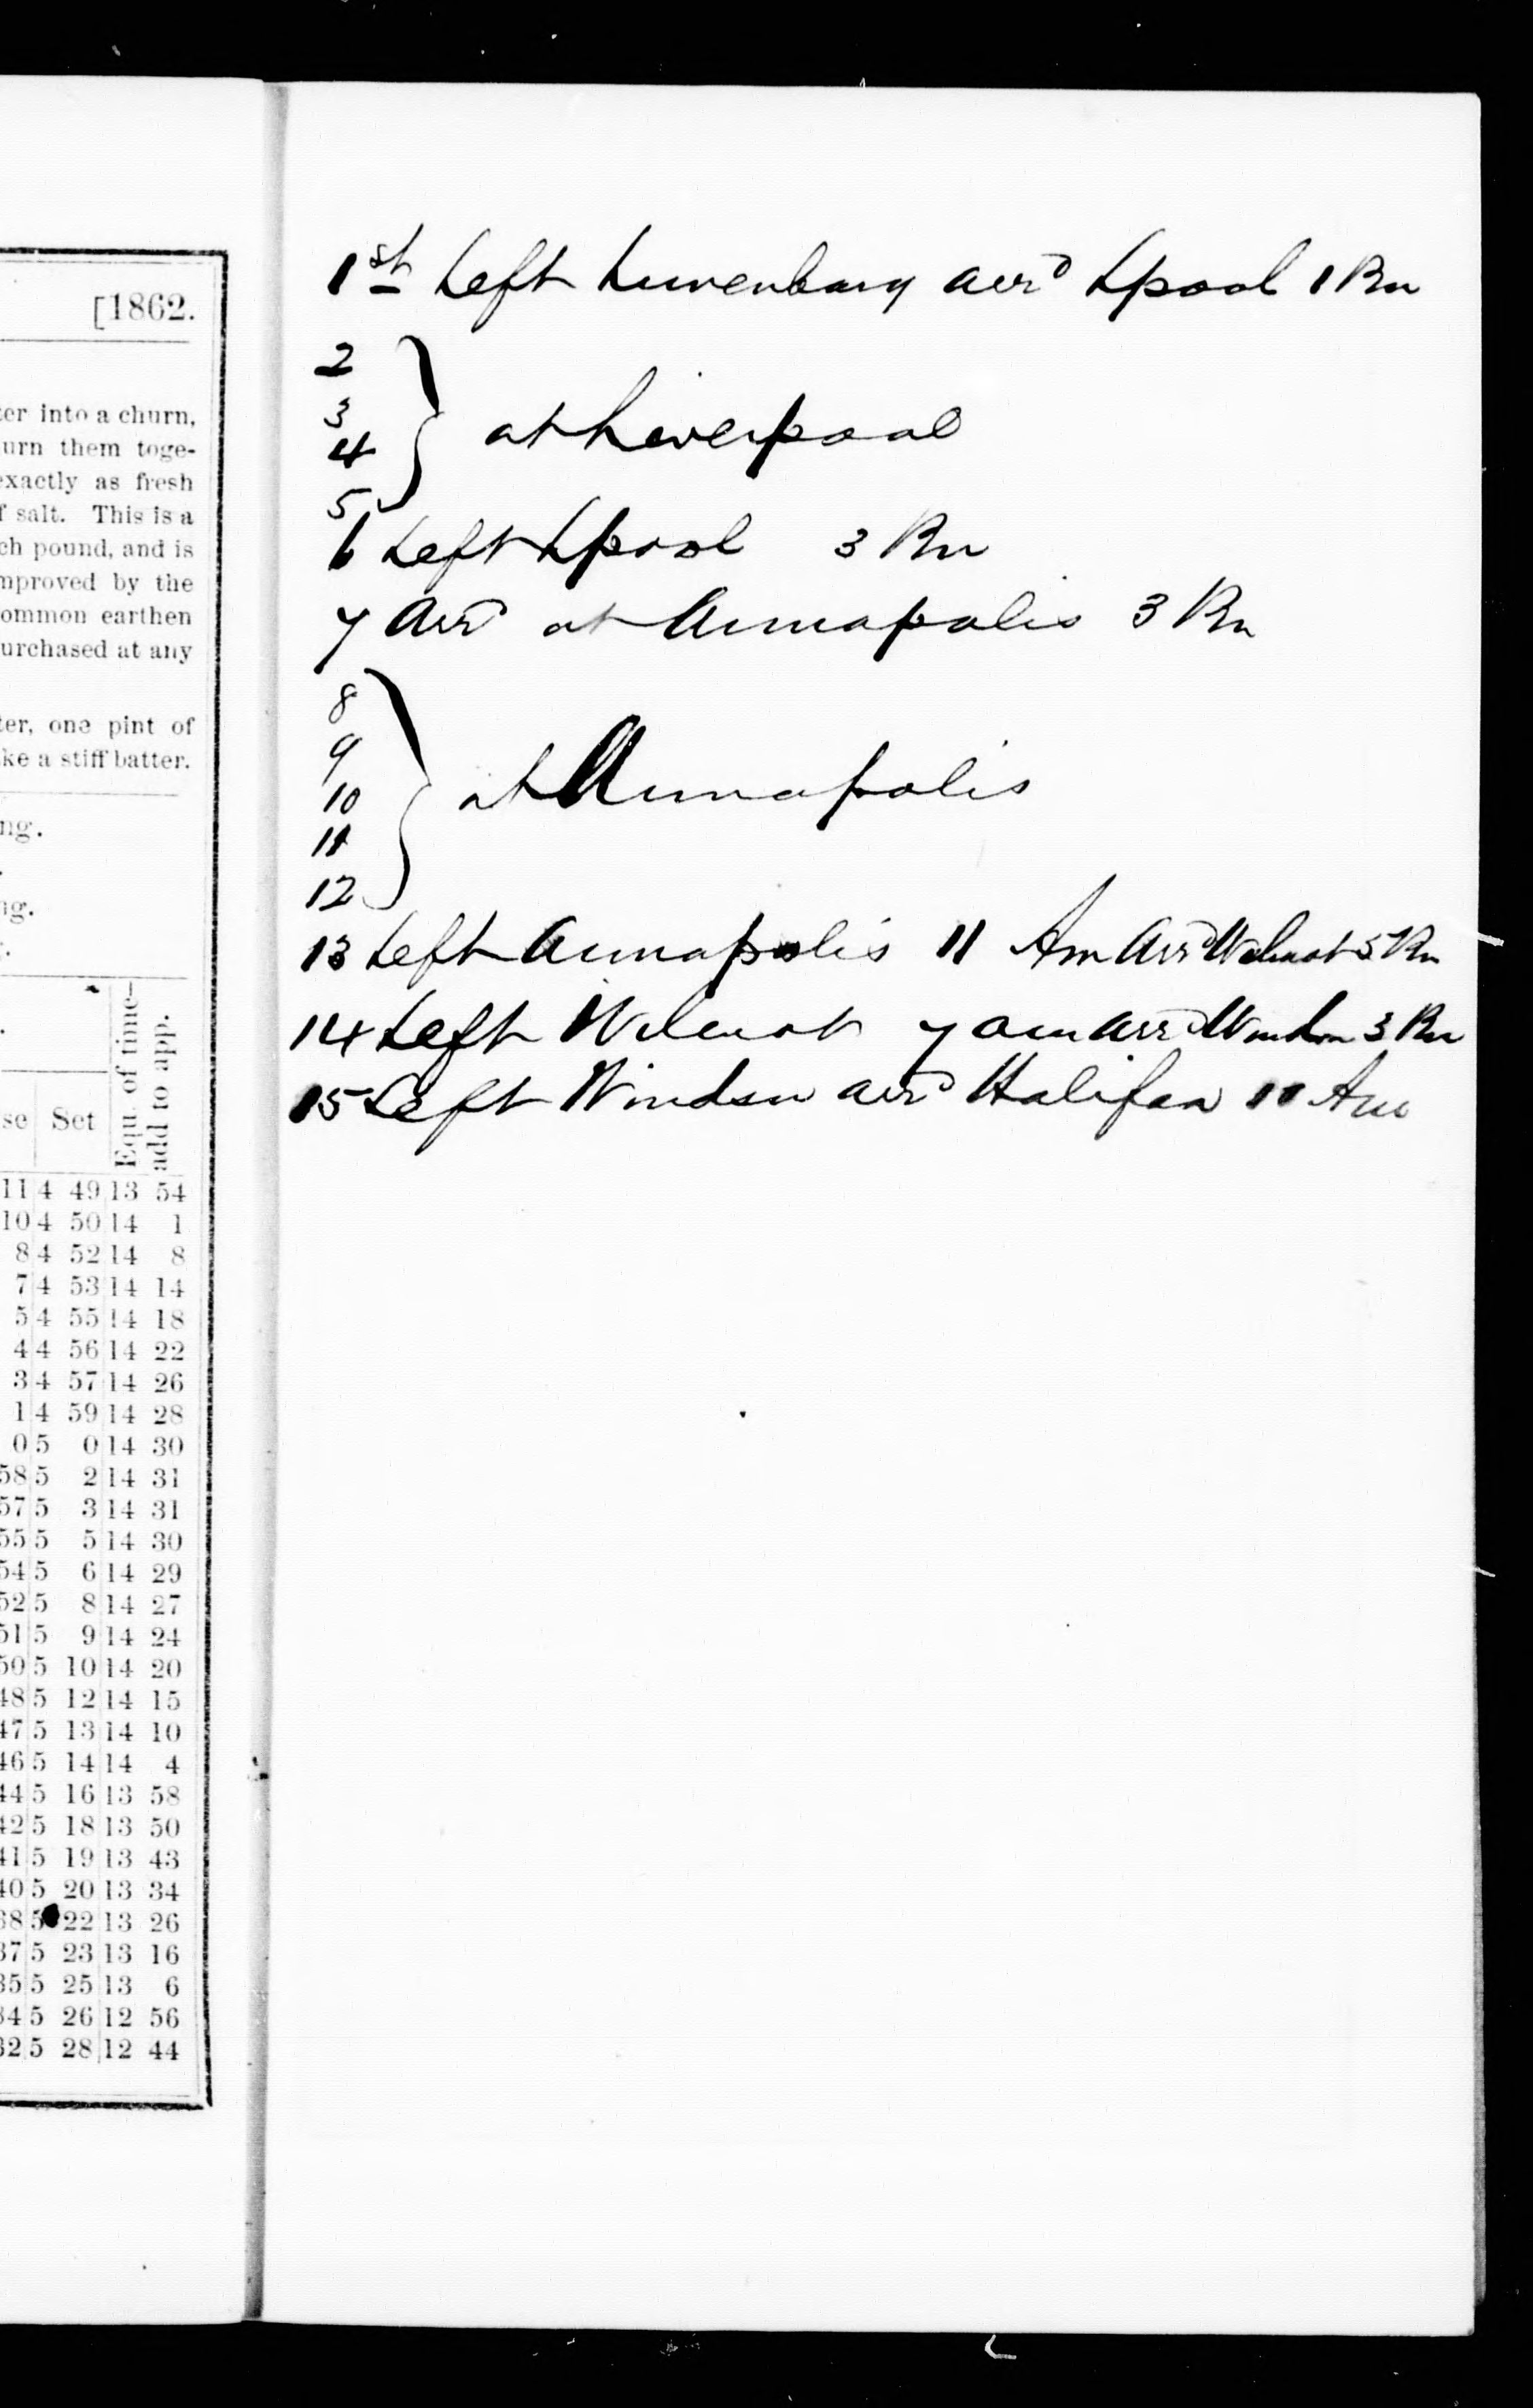 [1862.
er into a churn,
urn them toge-
exactly as fresh
f salt. This is a
ch pound, and is
mproved by the
ommon earthen
urchased at any
ter, one pint of
ke a stiff batter.
ng.
ng.
se Set Equ. of time—add to app.
11 4 49 13 54
10 4 50 14 1
8 4 52 14 8
7 4 53 14 14
5 4 55 14 18
4 4 56 14 22
3 4 57 14 26
1 4 59 14 28
0 5 0 14 30
58 5 2 14 31
57 5 3 14 31
55 5 5 14 30
54 5 6 14 29
52 5 8 14 27
51 5 9 14 24
50 5 10 14 20
48 5 12 14 15
47 5 13 14 10
46 5 14 14 4
44 5 16 13 58
42 5 18 13 50
41 5 19 13 43
40 5 20 13 34
38 5 22 13 26
37 5 23 13 16
35 5 25 13 6
34 5 26 12 56
32 5 28 12 44
1st Left Lunenburg arrd Lpool 1 Pm
2
3
4 at Liverpool
5
6 Left Lpool 3 Pm
7 Arrd at Annapolis 3 Pm
8
9
10 at Annapolis
11
12
13 Left Annapolis 11 Am Arrd Wilmot 5 Pm
14 Left Wilmot 7 am arrd Windsor 3 Pm
15 Left Windsor arrd Halifax 11 Am